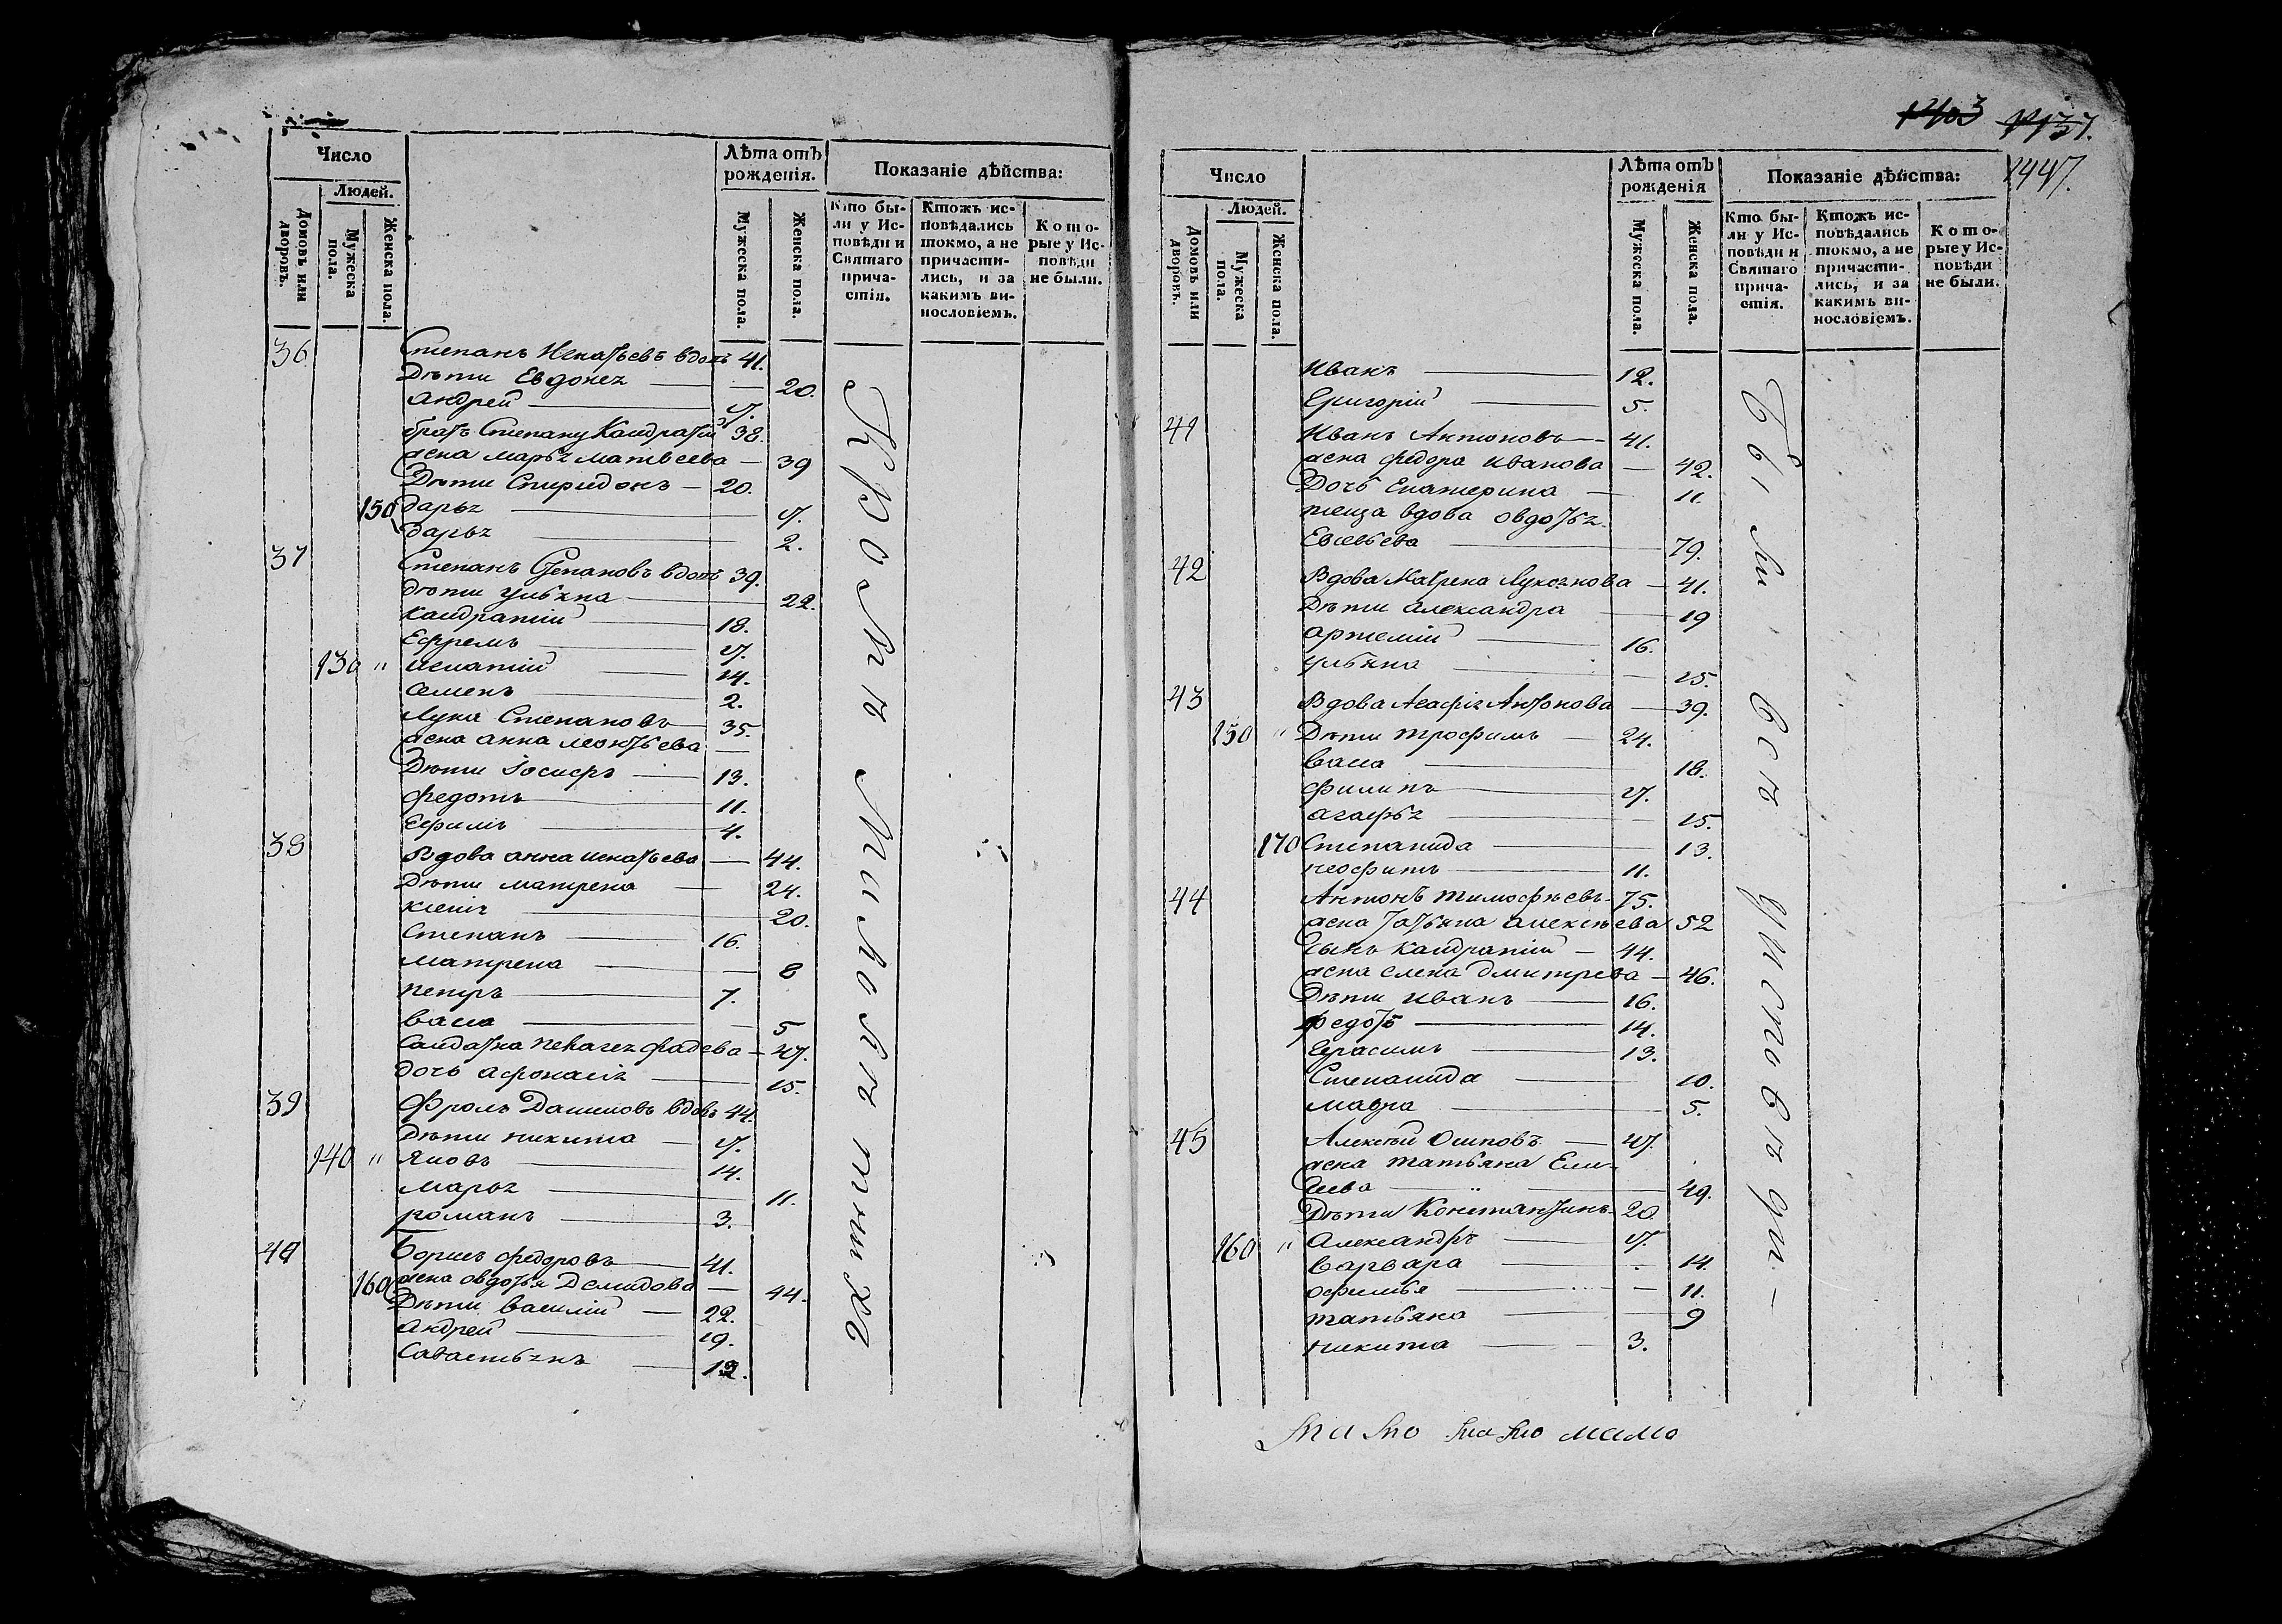 Число
Людей.
Домовъ или дворовъ.
Мужеска пола.
Женска пола.
Лѣта отъ рожденія.
Мужеска пола.
Женска пола.
Показаніе дѣйства:
Кто бы-
ли у Ис-
повѣди и
Святаго
прича-
стія.
Ктожъ ис-
повѣдались
токмо, а не
причасти-
лись, и за
какимъ ви-
нословіемъ.
Кото-
рые у Ис-
повѣди
не были.
36 Степанъ Игнатьевъ вдовъ 41.
Дѣти Евдокея 20.
Андрей
братъ Степану Кандратій 38.
жена марья матвеева 39
Дѣти Спиридонъ 20.
150 дарья
дарья 2.
37 Степанъ Степановъ вдовъ 39.
дѣти ульяна 22.
Кандратій 18.
Ефремъ
130 " игнатій 14.
семенъ 2.
Лука Степановъ 35.
жена анна леонтьева
Дѣти Іосифъ 13.
федотъ 11.
Ефимъ 4.
38 Вдова анна игнатьева 44.
Дѣти матрена 24.
ксенія 20.
Степанъ 16.
матрена 8
петръ 7.
васса 5
Салдатка пелагея фадеева 47.
дочь афонасія 15.
39 Фролъ Даниловъ вдовъ 44.
Дѣти никита
140 " Яковъ 14.
марья 11.
романъ 3.
40 Борисъ федоровъ 41.
160 жена овдотья Демидова 44.
Дѣти василій 22.
Андрей 19.
Савастьянъ 12.
2403 2437.
2447.
Число
Людей.
Домовъ или дворовъ.
Мужеска пола.
Женска пола.
Лѣта отъ рожденія
Мужеска пола.
Женска пола.
Показаніе дѣйства:
Кто бы-
ли у Ис-
повѣди и
Святаго
прича-
стія.
Ктожъ ис-
повѣдались
токмо, а не
причасти-
лись, и за
какимъ ви-
нословіемъ.
Кото-
рые у Ис-
повѣди
не были.
Иванъ 12.
Григорій 5.
41 Иванъ Антоновъ 41.
жена федора иванова 42.
Дочь Екатерина 11.
теща вдова овдотья
Евсевьева 79.
42 Вдова Матрена Лукоянова 41.
Дѣти александра 19
артемій 16.
ульяна 15.
43 Вдова Агафія Антонова 39.
150 " Дѣти трофимъ 24.
васса 18.
филипъ
агафья 15.
170 Степанида 13.
неофитъ 11.
44 Антонъ тимофѣевъ 75.
жена татьяна алексѣева 52
Сынъ кандратій 44.
жена елена дмитрева 46.
Дѣти иванъ 16.
федотъ 14.
Герасимъ 13.
Степанида 10.
мавра 5.
45 Алексѣй Осиповъ 47.
жена татьяна Ели-
сѣева 49.
Дѣти Константинъ 20.
160 " Александръ
варвара 14.
офимья 11.
татьяна 9
никита 3.
Были всѣ у исповѣди